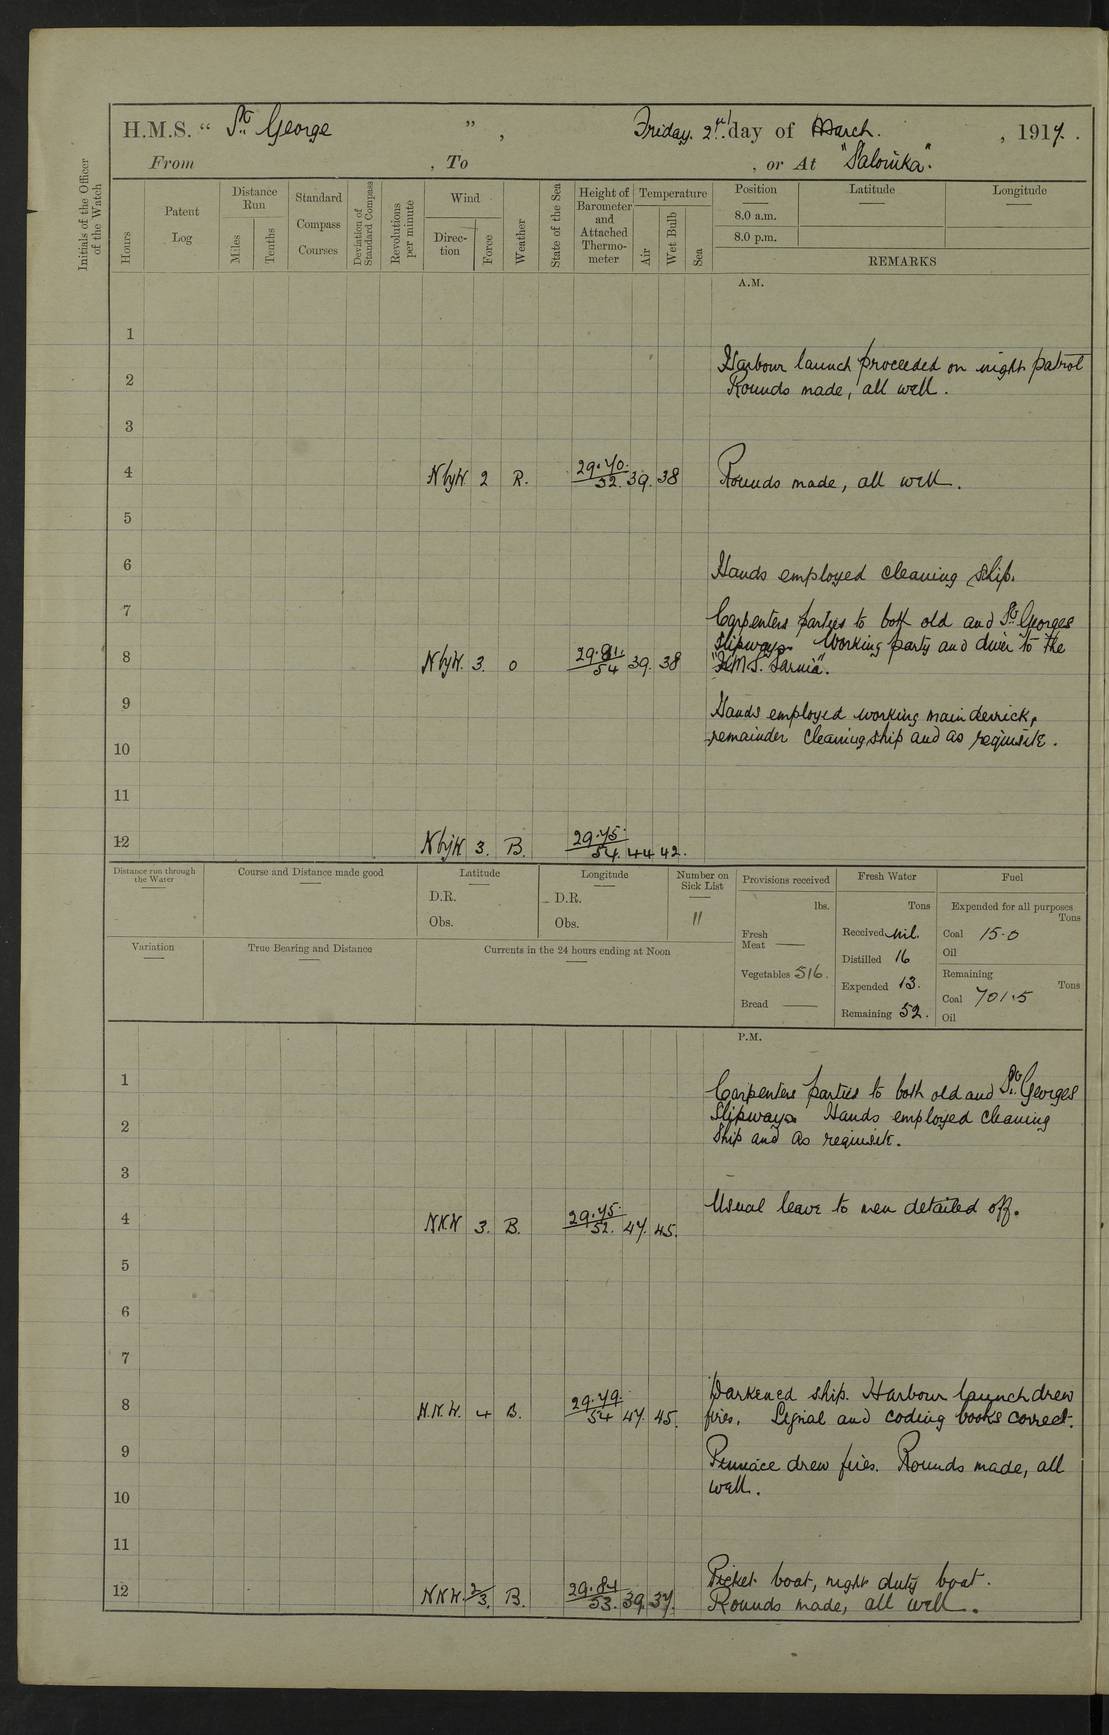 H.M.S. “ St. George ” , Friday. 2nd. day of March. , 1917.
From , To , or At "Salonika".
Initials of the Officer of the Watch
Hours
Patent Log
Distance Run
Miles
Tenths
Standard Compass Courses
Deviation of Standard Compass
Revolutions per minute
Wind
Direction
Force
Weather
State of the Sea
Height of Barometer and Attached Thermometer
Temperature
Air
Wet Bulb
Sea
Position Latitude Longitude
8.0 a.m.
8.0 p.m.
REMARKS
A.M.
1
Harbour launch proceeded on night patrol
2 Rounds made, all well.
3
4 NbyW 2 R. 29.70. 52. 39. 38 Rounds made, all well.
5
6 Hands employed cleaning ship.
7 Carpenters parties to both old and St. Georges
Slipways. Working party and diver to the
8 NbyW. 3. O 54 39. 38 "H.M.S. Sarnia".
9 Hands employed working main derrick,
remainder cleaning ship and as requisite.
10
11
12 NbyW 3. B. 29.75. 54. 44 42.
Distance run through the Water
Course and Distance made good
Latitude
D.R.
Obs.
Longitude
D.R.
Obs.
Number on Sick List
11
Provisions received
lbs.
Fresh Meat ——
Vegetables 516.
Bread ——
Fresh Water
Tons
Received nil.
Distilled 16
Expended 13.
Remaining 52.
Fuel
Expended for all purposes
Tons
Coal 15.0
Oil
Remaining
Tons
Coal 701.5
Oil
Variation
True Bearing and Distance
Currents in the 24 hours ending at Noon
P.M.
1 Carpenters parties to both old and St. Georges
Slipways Hands employed cleaning
2 Ship and as requisite.
3
Usual leave to men detailed off.
4 NNW 3. B. 29.75. 52. 47. 45.
5
6
7
Darkened ship. Harbour launch drew
8 N.N.W. 4 B. 29.79. 54 47. 45. fires. Signal and coding books correct.
9 Pinnace drew fires. Rounds made, all
10 well.
11
Picket boat, night duty boat.
12 NNW. 2/3. B. 29.84 53. 39. 37. Rounds made, all well.